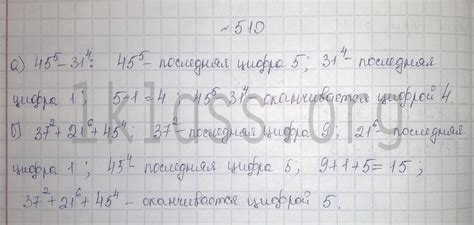 ~510
а) 45⁵ – 31⁴: 45⁵ – последняя цифра 5; 31⁴ – последняя
цифра 1; 5-1=4; 45⁵-31⁴ оканчивается цифрой 4.
б) 37²+21⁶+45⁴; 37² – последняя цифра 9, 21⁶ – последняя
цифра 1; 45⁴ – последняя цифра 5; 9+1+5=15;
37²+21⁶+45⁴ – оканчивается цифрой 5.
1klass.org